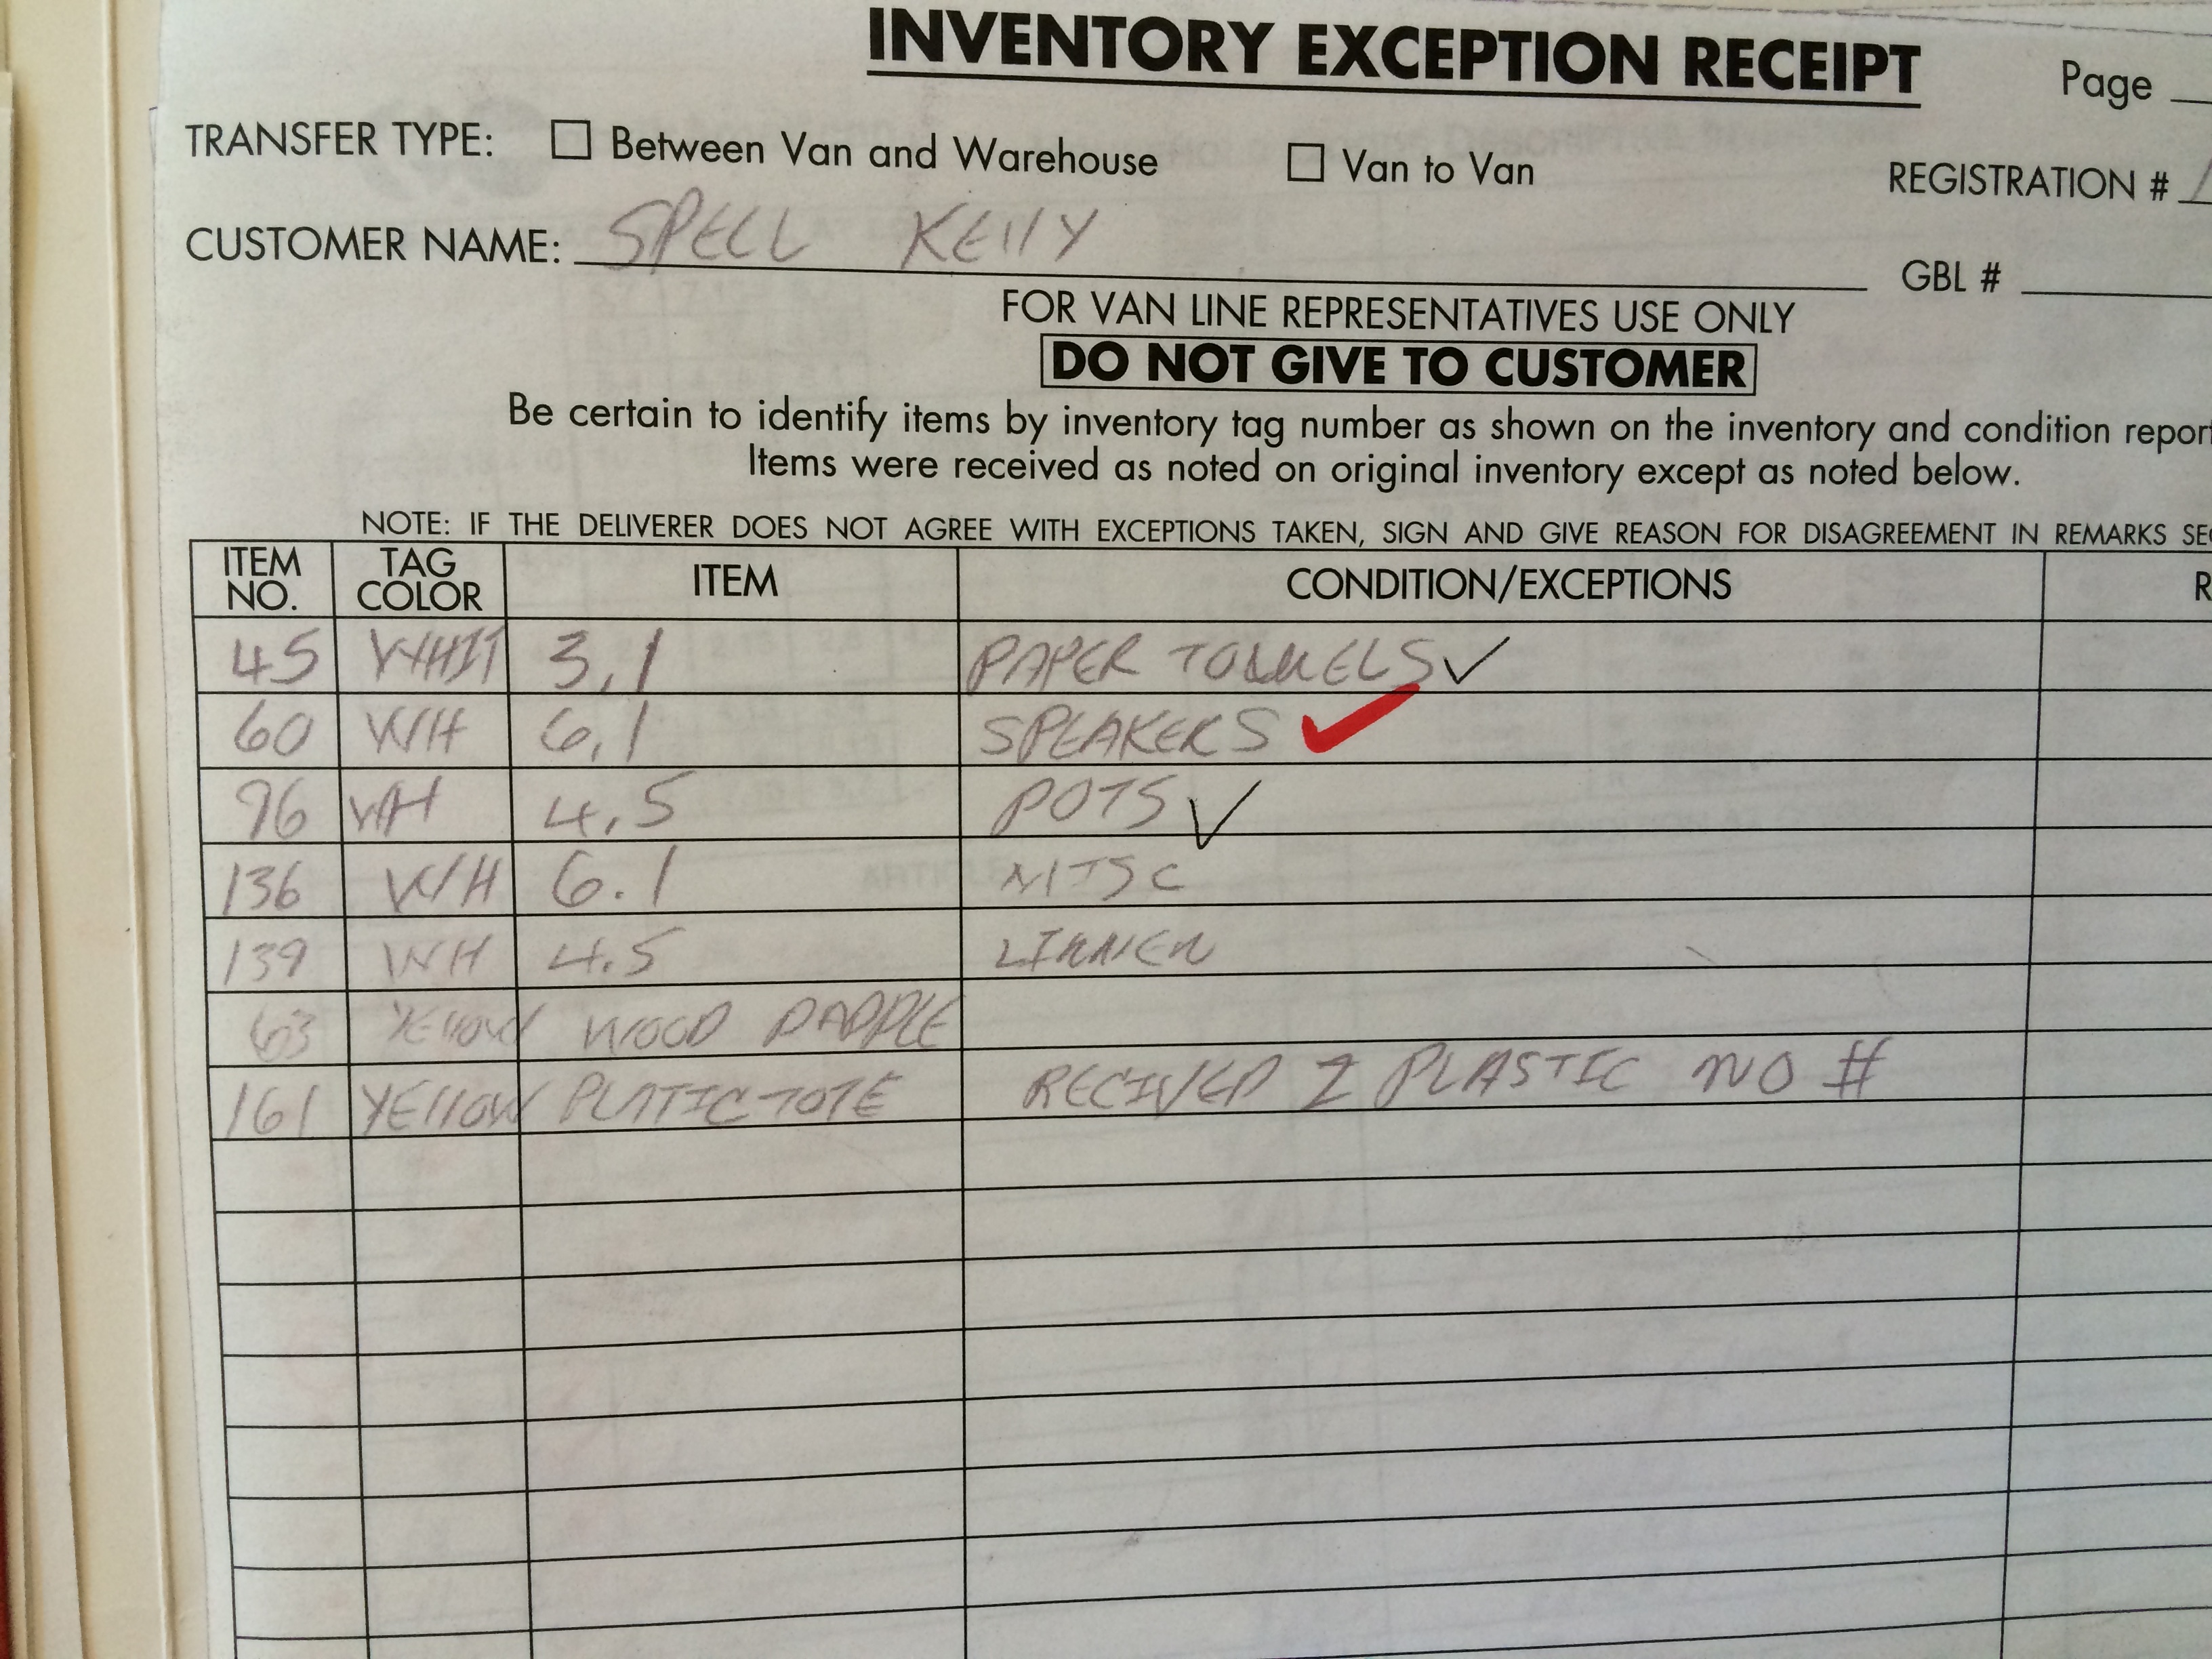 INVENTORY EXCEPTION RECEIPT Page
TRANSFER TYPE: Between Van and Warehouse Van to Van REGISTRATION #
CUSTOMER NAME: SPELL KELLY GBL #
FOR VAN LINE REPRESENTATIVES USE ONLY
DO NOT GIVE TO CUSTOMER
Be certain to identify items by inventory tag number as shown on the inventory and condition report
Items were received as noted on original inventory except as noted below.
NOTE: IF THE DELIVERER DOES NOT AGREE WITH EXCEPTIONS TAKEN, SIGN AND GIVE REASON FOR DISAGREEMENT IN REMARKS SEC
ITEM NO. TAG COLOR ITEM CONDITION/EXCEPTIONS R
45 WHIT 3,1 PAPER TOWELS ✓
60 WH 6,1 SPEAKERS ✓
96 WH 4,5 POTS ✓
136 WH 6.1 MISC
139 WH 4.5 LINNEN
63 YELLOW WOOD PADDLE
161 YELLOW PLATIC TOTE RECIVED 2 PLASTIC NO #